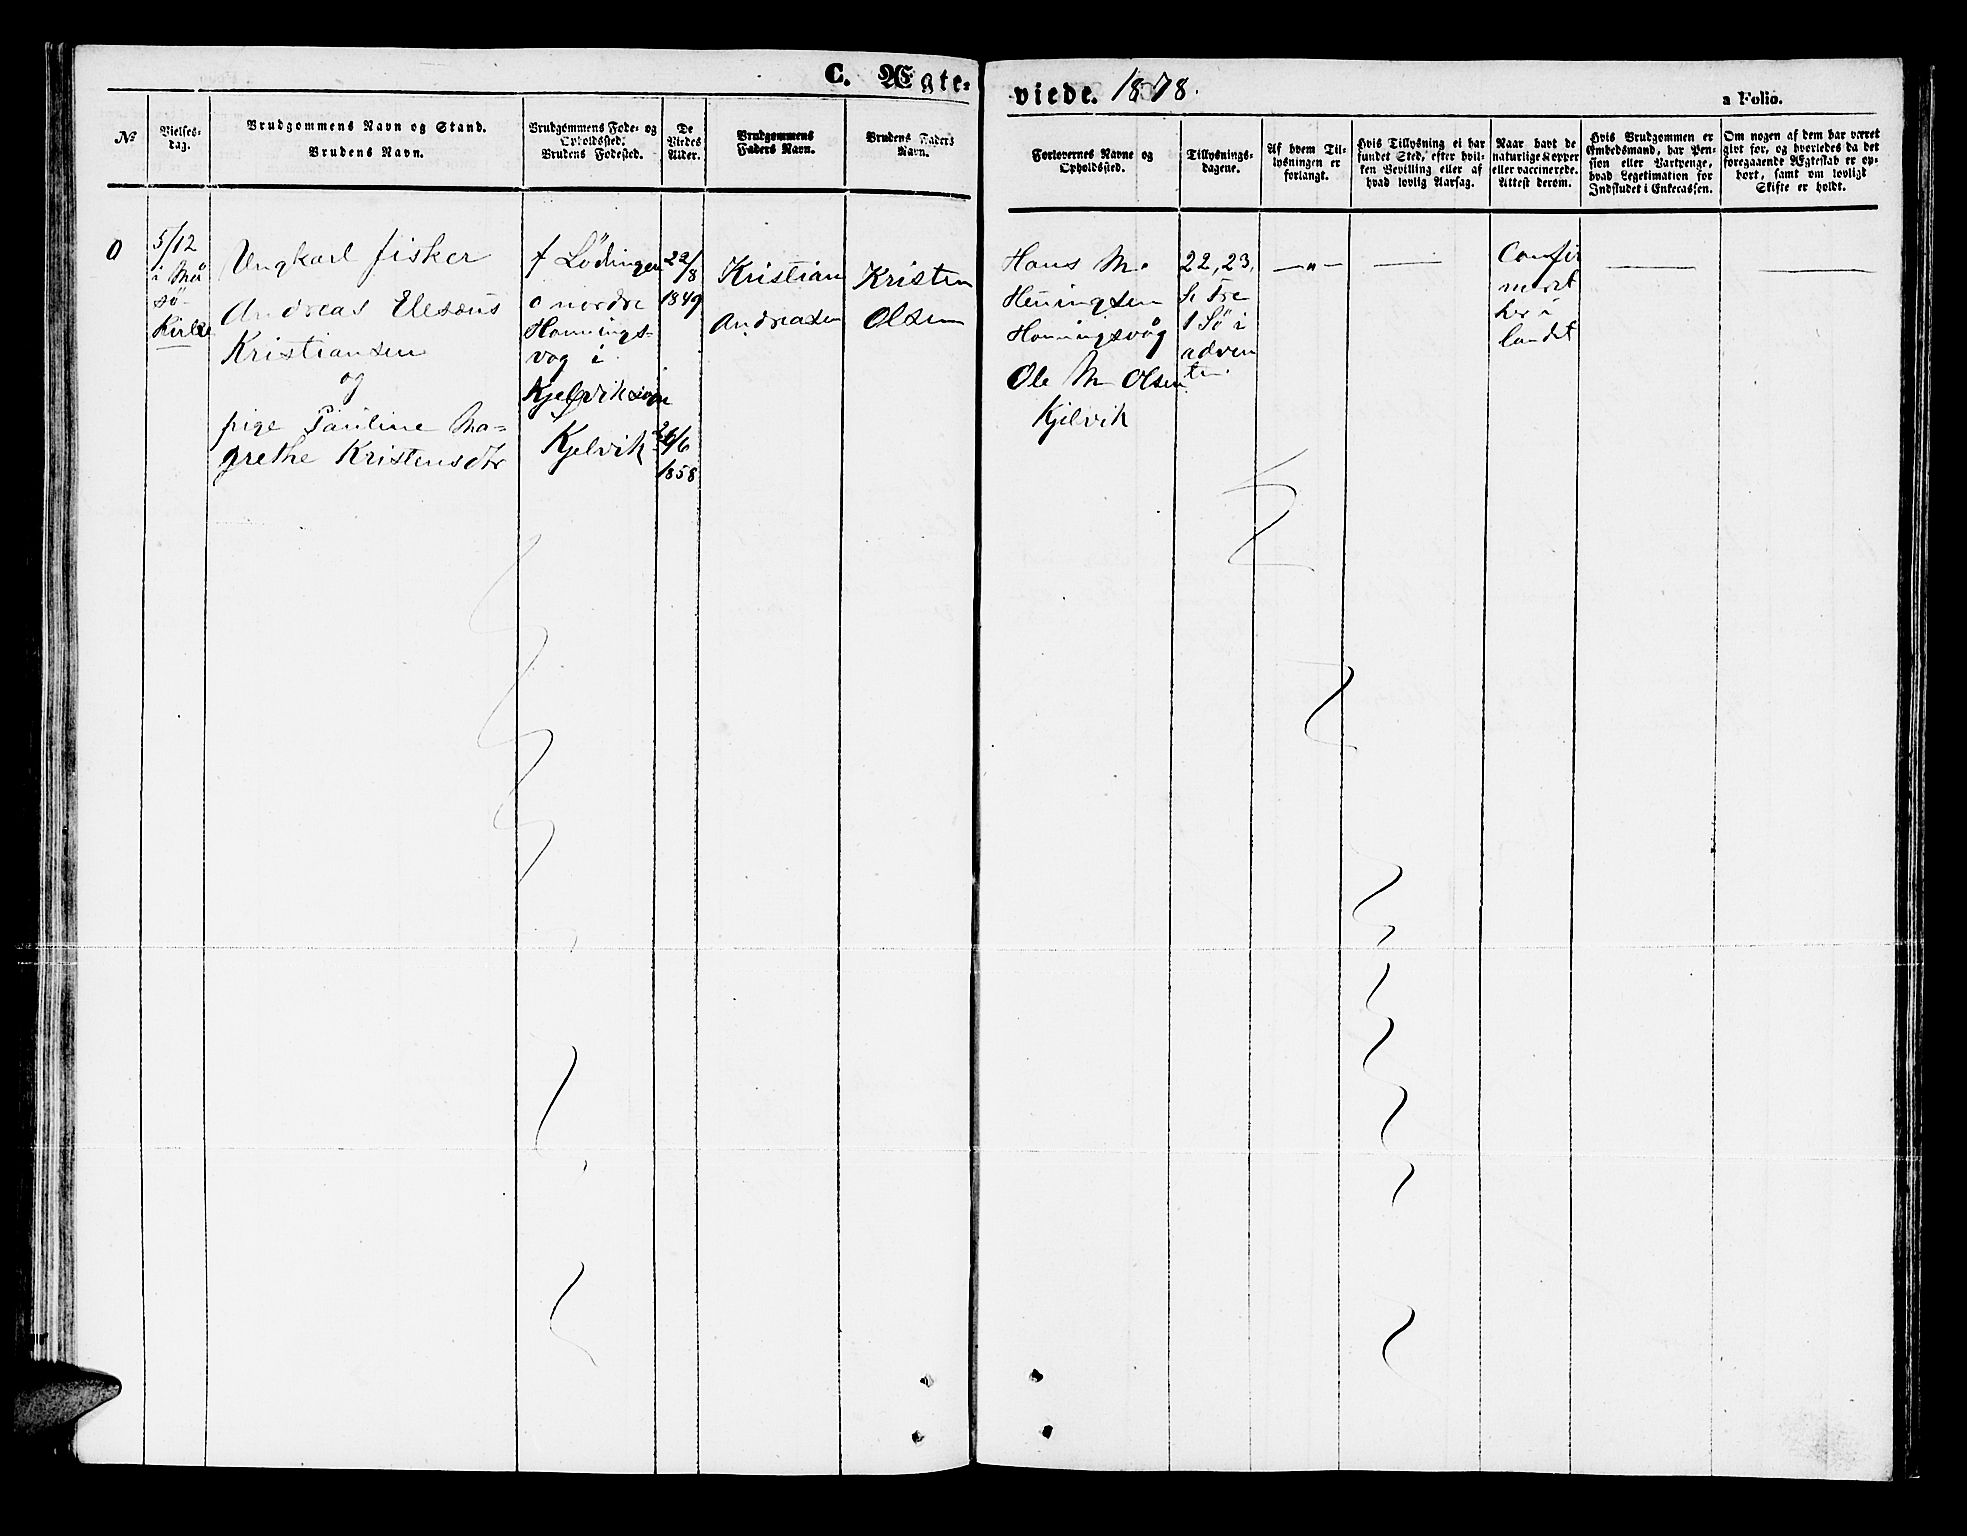 C. Ægte-
viede. 1878.
a Folio.
№
Vielses-
dag.
Brudgommens Navn og Stand.
Brudens Navn.
Brudgommens Føde- og
Opholdssted.
Brudens Fødested.
De
Viedes
Alder.
Brudgommens
Faders Navn.
Brudens Faders
Navn.
Forlovernes Navne og
Opholdssted.
Tillysnings-
dagene.
Af hvem Til-
lysningen er
forlangt.
Hvis Tillysning ei har
fundet Sted, efter hvil-
ken Bevilling eller af
hvad lovlig Aarsag.
Naar havt de
naturlige Kopper
eller vaccinerede.
Attest derom.
Hvis Brudgommen er
Embedsmand, har Pen-
sion eller Vartpenge,
hvad Legetimation for
Indskudet i Enkecassen.
Om nogen af dem har været
givt før, og hvorledes da det
foregaaende Ægteskab er op-
hørt, samt om lovligt
Skifte er holdt.
0
5/12
i Må
sö-
Kirke
Ungkarl fisker
Andreas Elesæus
Kristiansen
og
pige Pauline Ma-
grethe Kristensdtr
f Lödingen
o nordre
Honnings-
vog i
Kjelvik sogn
Kjelvik
22/8
1849
26/6
1858
Kristian
Andreasen
Kristen
Olsen
Hans M.
Heningsen
Honingsvåg
Ole M Olsen
Kjelvik
22, 23,
s. Tre
1 Sö i
adven
ten.
—"—
—
Confir
meret
her i
landet
—
—